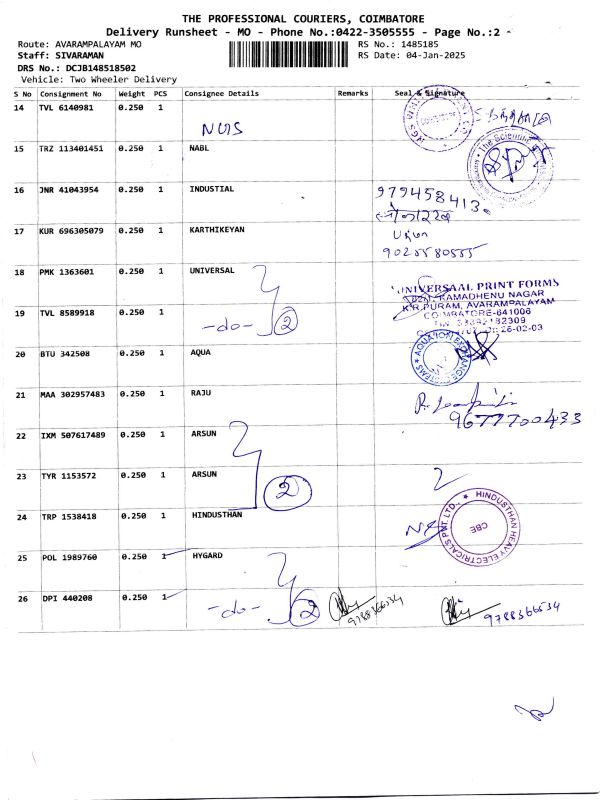 THE PROFESSIONAL COURIERS, COIMBATORE
Delivery Runsheet - MO - Phone No.:0422-3505555 - Page No.:2 -
Route: AVARAMPALAYAM MO
RS No.: 1485185
Staff: SIVARAMAN
RS Date: 04-Jan-2025
DRS No.: DCJB148518502
Vehicle: Two Wheeler Delivery
S No Consignment No Weight PCS Consignee Details Remarks Seal & Signature
14 TVL 6140981 0.250 1
15 TRZ 113401451 0.250 1 NABL
16 JNR 41043954 0.250 1 INDUSTIAL
9794584130
17 KUR 696305079 0.250 1 KARTHIKEYAN
18 PMK 1363601 0.250 1 UNIVERSAL
UNIVERSAAL PRINT FORMS
KAMADHENU NAGAR
K.R.PURAM, AVARAMPALAYAM
COIMBATORE-641006
19 TVL 8589918 1 0.250 -do- 2
20 BTU 342508 0.250 1 AQUA
21 MAA 302957483 0.250 1 RAJU
9677700433
22 IXM 507617489 0.250 1 ARSUN
23 TYR 1153572 0.250 1 ARSUN 2
2
24 TRP 1538418 0.250 1 HINDUSTHAN
HINDUSTHAN HEAVY ELECTRICALS PVT.LTD., ★
CBE
25 POL 1989760 0.250 1 HYGARD
26 DPI 440208 0.250 1 -do- 2
9788366534
9788366534